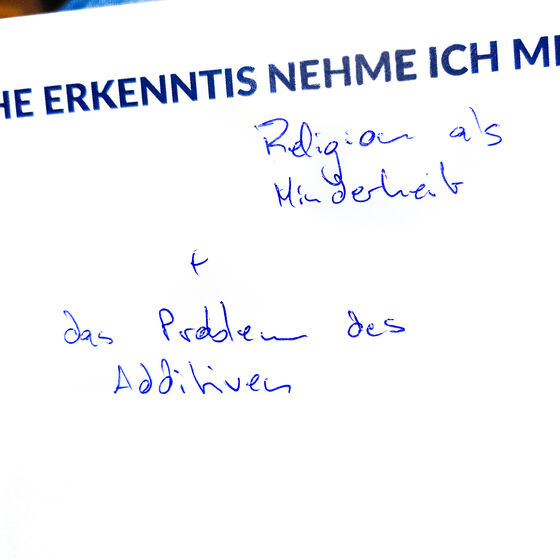 HE ERKENNTIS NEHME ICH MI
Religion als
Minderheit
+
das Problem des
Additiven